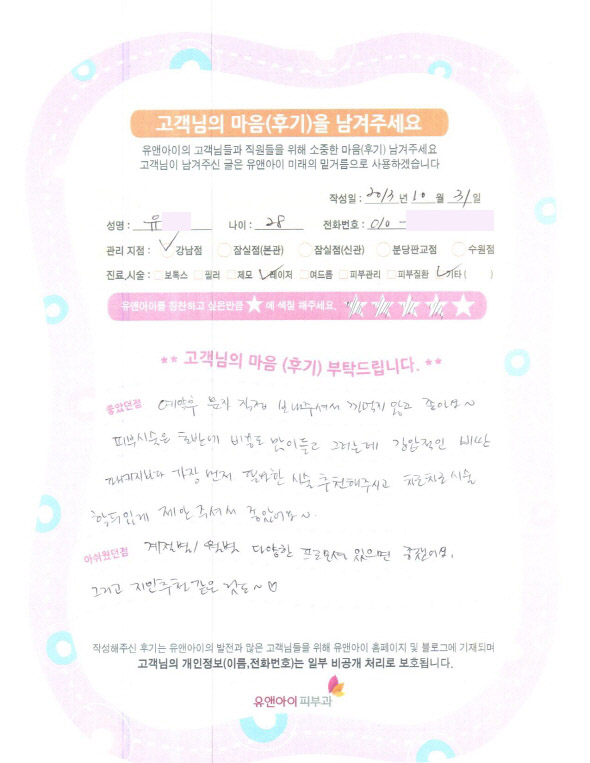 고객님의 마음(후기)을 남겨주세요
유앤아이의 고객님들과 직원들을 위해 소중한 마음(후기) 남겨주세요
고객님이 남겨주신 글은 유앤아이 미래의 밑거름으로 사용하겠습니다
작성일 : 2013 년 10 월 31 일
성명 : 유 나이 : 28 전화번호 : 010 -
관리 지점 : 강남점 잠실점(본관) 잠실점(신관) 분당판교점 수원점
진료,시술 : 보톡스 필러 제모 레이저 여드름 피부관리 피부질환 기타 ( )
유앤아이를 칭찬하고 싶은만큼 ★ 에 색칠 해주세요. ★★★★★
** 고객님의 마음 (후기) 부탁드립니다. **
좋았던점 예약후 문자 직접 보내주셔서 까먹지 않고 좋아요~
피부시술은 초반에 비용도 많이들고 그러는데 강압적인 비싼
패키지보다 가장 먼저 필요한 시술 추천해주시고 차근차근 시술
할수있게 제안 주셔서 좋았어요~.
아쉬웠던점 계절별/월별 다양한 프로모션 있으면 좋겠어요.
그리고 지인추천 같은 것도~♡
작성해주신 후기는 유앤아이의 발전과 많은 고객님들을 위해 유앤아이 홈페이지 및 블로그에 기재되며
고객님의 개인정보(이름,전화번호)는 일부 비공개 처리로 보호됩니다.
유앤아이피부과